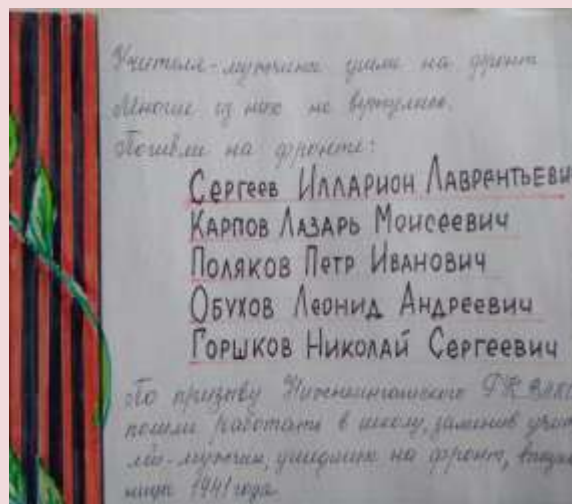 Учителя-мужчины ушли на фронт
Многие из них не вернулись.
Погибли на фронте:
Сергеев Илларион Лаврентьеви
Карпов Лазарь Моисеевич
Поляков Петр Иванович
Обухов Леонид Андреевич
Горшков Николай Сергеевич
По призыву Нижнеингашского РК ВЛКС
пошли работать в школу, заменив учит
лей-мужчин, ушедших на фронт, выпуск
ницы 1941 года.